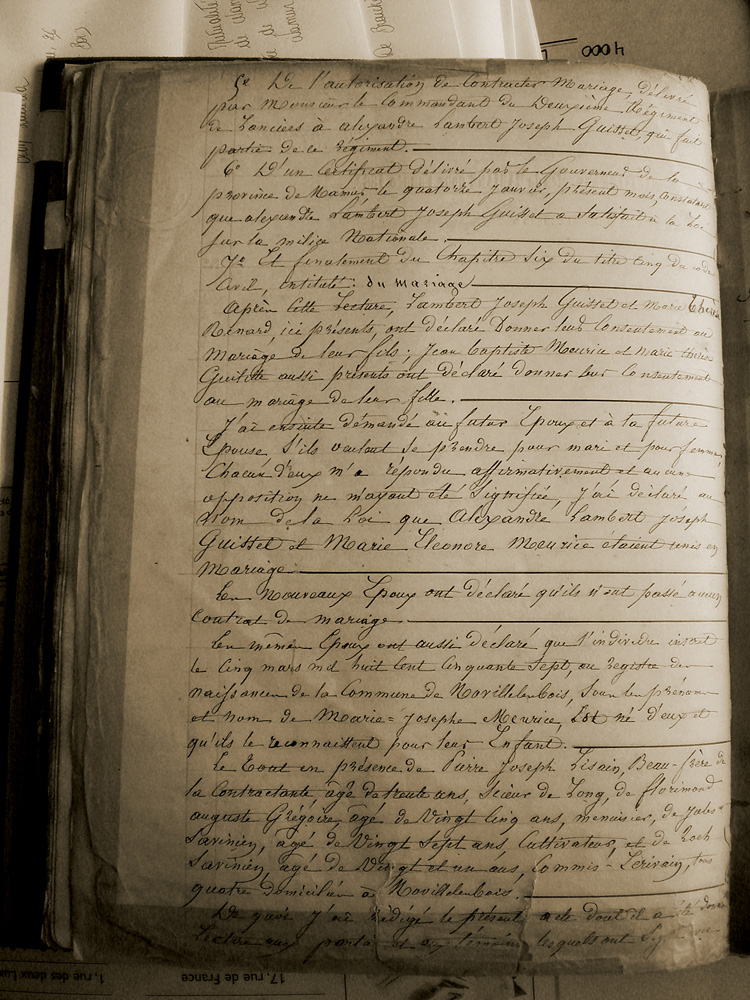 5° De l'autorisation de Contracter Mariage, délivré
par Monsieur le Commandant du Deuxième Régiment
de Lanciers à alexandre Lambert Joseph Guisset, qui fait
partie de ce Régiment.
6° D'un Certificat délivré par le Gouverneur de la
province de Namur le quatorze Janvier, présent mois, constatant
que alexandre Lambert Joseph Guisset a Satisfait à la Loi
sur la milice Nationale.
7° Et finalement du Chapitre Six du titre Cinq du code
Civil, intitulé: du mariage
Après cette Lecture, Lambert Joseph Guisset et Marie Thérèse
Renard, ici présents, ont déclaré Donner leur Consentement au
Mariage de leur fils; Jean baptiste Meurice et Marie thérèse
aussi présents ont déclaré donner leur Consentement
au mariage de leur fille.
J'ai ensuite démandé au futur Epoux et à la future
Epouse, S'ils veulent se prendre pour mari et pour femme,
Chacun d'eux m'a répondu affirmativement et aucune
opposition ne m'ayant été Signifiée, J'ai déclaré au
Nom de la Loi que Alexandre Lambert Joseph
Guisset et Marie Eleonore Meurice étaient unis en
Mariage.
Les Nouveaux Epoux ont déclaré qu'ils n'ont passé aucun
contrat de mariage.
Les mêmes Epoux ont aussi déclaré que l'individu inscrit
le Cinq mars mil huit Cent Cinquante Sept, au registre des
naissances de la Commune de Novillelesbois, Sous les prénoms
et nom de Marie-Josephe Meurice, Est né d'eux et
qu'ils le reconnaissent pour leur Enfant.
Le tout en présence de Pierre Joseph Lisain, Beau-frère de
la Contractante âgé de trente ans, Scieur de Long, de florimond
auguste Grégoire, âgé de Vingt Cinq ans, menuisier, de Jules
Savinien, âgé de Vingt Sept ans, Cultivateur, et de Roch
Savinien, âgé de Vingt et un ans, Commis-Ecrivain, tous
quatre domiciliés à Novillelesbois.
De quoi J'ai Rédigé le présent acte dont il a été donné
Lecture aux parties et aux témoins lesquels ont
17. rue de France
1. rue des deux